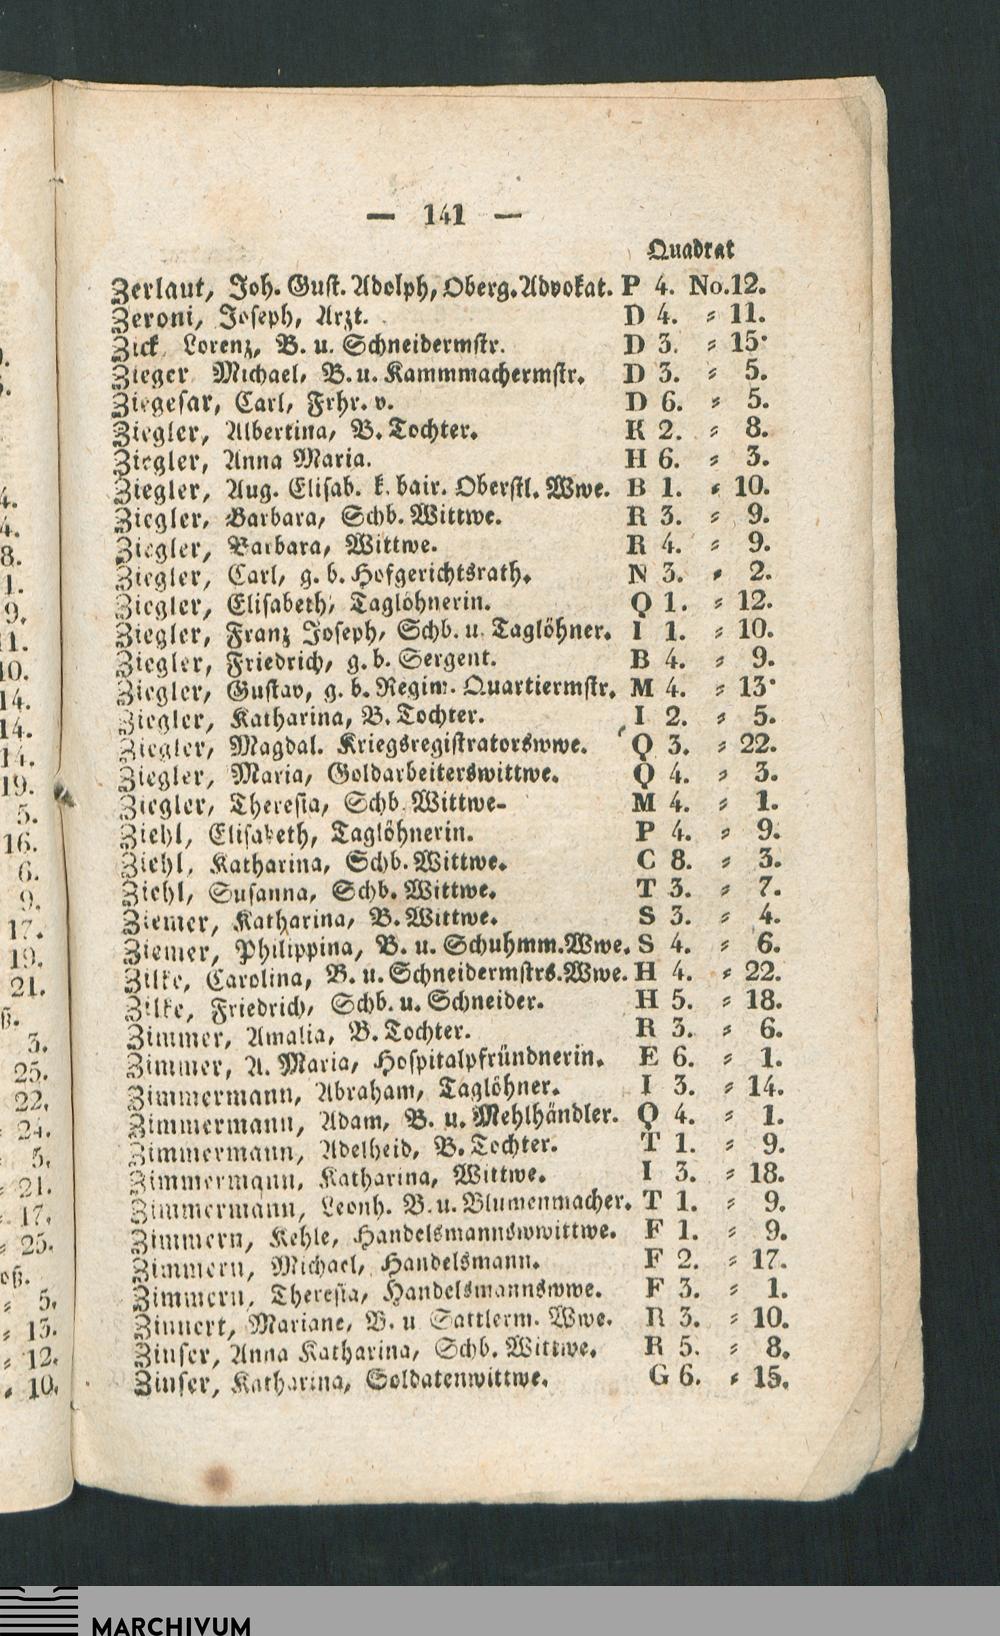 — 141 —
Quadrat
Zerlaut, Joh. Gust. Adolph, Oberg. Advokat. P 4. No. 12.
Zeroni, Joseph, Arzt. D 4. = 11.
Zick Lorenz, B. u. Schneidermstr. D 3. = 15.
Zieger Michael, B. u. Kammmachermstr. D 3. = 5.
Ziegesar, Carl, Frhr. v. D 6. = 5.
Ziegler, Albertina, B. Tochter. K 2. = 8.
Ziegler, Anna Maria. H 6. = 3.
Ziegler, Aug. Elisab. k. bair. Oberstl. Wwe. B 1. = 10.
Ziegler, Barbara, Schb. Wittwe. R 3. = 9.
Ziegler, Barbara, Wittwe. R 4. = 9.
Ziegler, Carl, g. b. Hofgerichtsrath. N 3. = 2.
Ziegler, Elisabeth, Taglöhnerin. Q 1. = 12.
Ziegler, Franz Joseph, Schb. u. Taglöhner. I 1. = 10.
Ziegler, Friedrich, g. b. Sergent. B 4. = 9.
Ziegler, Gustav, g. b. Regim. Quartiermstr. M 4. = 13.
Ziegler, Katharina, B. Tochter. I 2. = 5.
Ziegler, Magdal. Kriegsregistratorswwe. Q 3. = 22.
Ziegler, Maria, Goldarbeiterswittwe. Q 4. = 3.
Ziegler, Theresia, Schb. Wittwe- M 4. = 1.
Ziehl, Elisabeth, Taglöhnerin. P 4. = 9.
Ziehl, Katharina, Schb. Wittwe. C 8. = 3.
Ziehl, Susanna, Schb. Wittwe. T 3. = 7.
Ziemer, Katharina, B. Wittwe. S 3. = 4.
Ziemer, Philippina, B. u. Schuhmm. Wwe. S 4. = 6.
Zilke, Carolina, B. u. Schneidermstrs. Wwe. H 4. = 22.
Zilke, Friedrich, Schb. u. Schneider. H 5. = 18.
Zimmer, Amalia, B. Tochter. R 3. = 6.
Zimmer, A. Maria, Hospitalpfründnerin. E 6. = 1.
Zimmermann, Abraham, Taglöhner. I 3. = 14.
Zimmermann, Adam, B. u. Mehlhändler. Q 4. = 1.
Zimmermann, Adelheid, B. Tochter. T 1. = 9.
Zimmermann, Katharina, Wittwe. I 3. = 18.
Zimmermann, Leonh. B. u. Blumenmacher. T 1. = 9.
Zimmern, Kehle, Handelsmannswwittwe. F 1. = 9.
Zimmern, Michael, Handelsmann. F 2. = 17.
Zimmern, Theresia, Handelsmannswwe. F 3. = 1.
Zinnert, Mariane, B. u Sattlerm. Wwe. R 3. = 10.
Zinser, Anna Katharina, Schb. Wittwe. R 5. = 8.
Zinser, Katharina, Soldatenwittwe. G 6. = 15.
MARCHIVUM